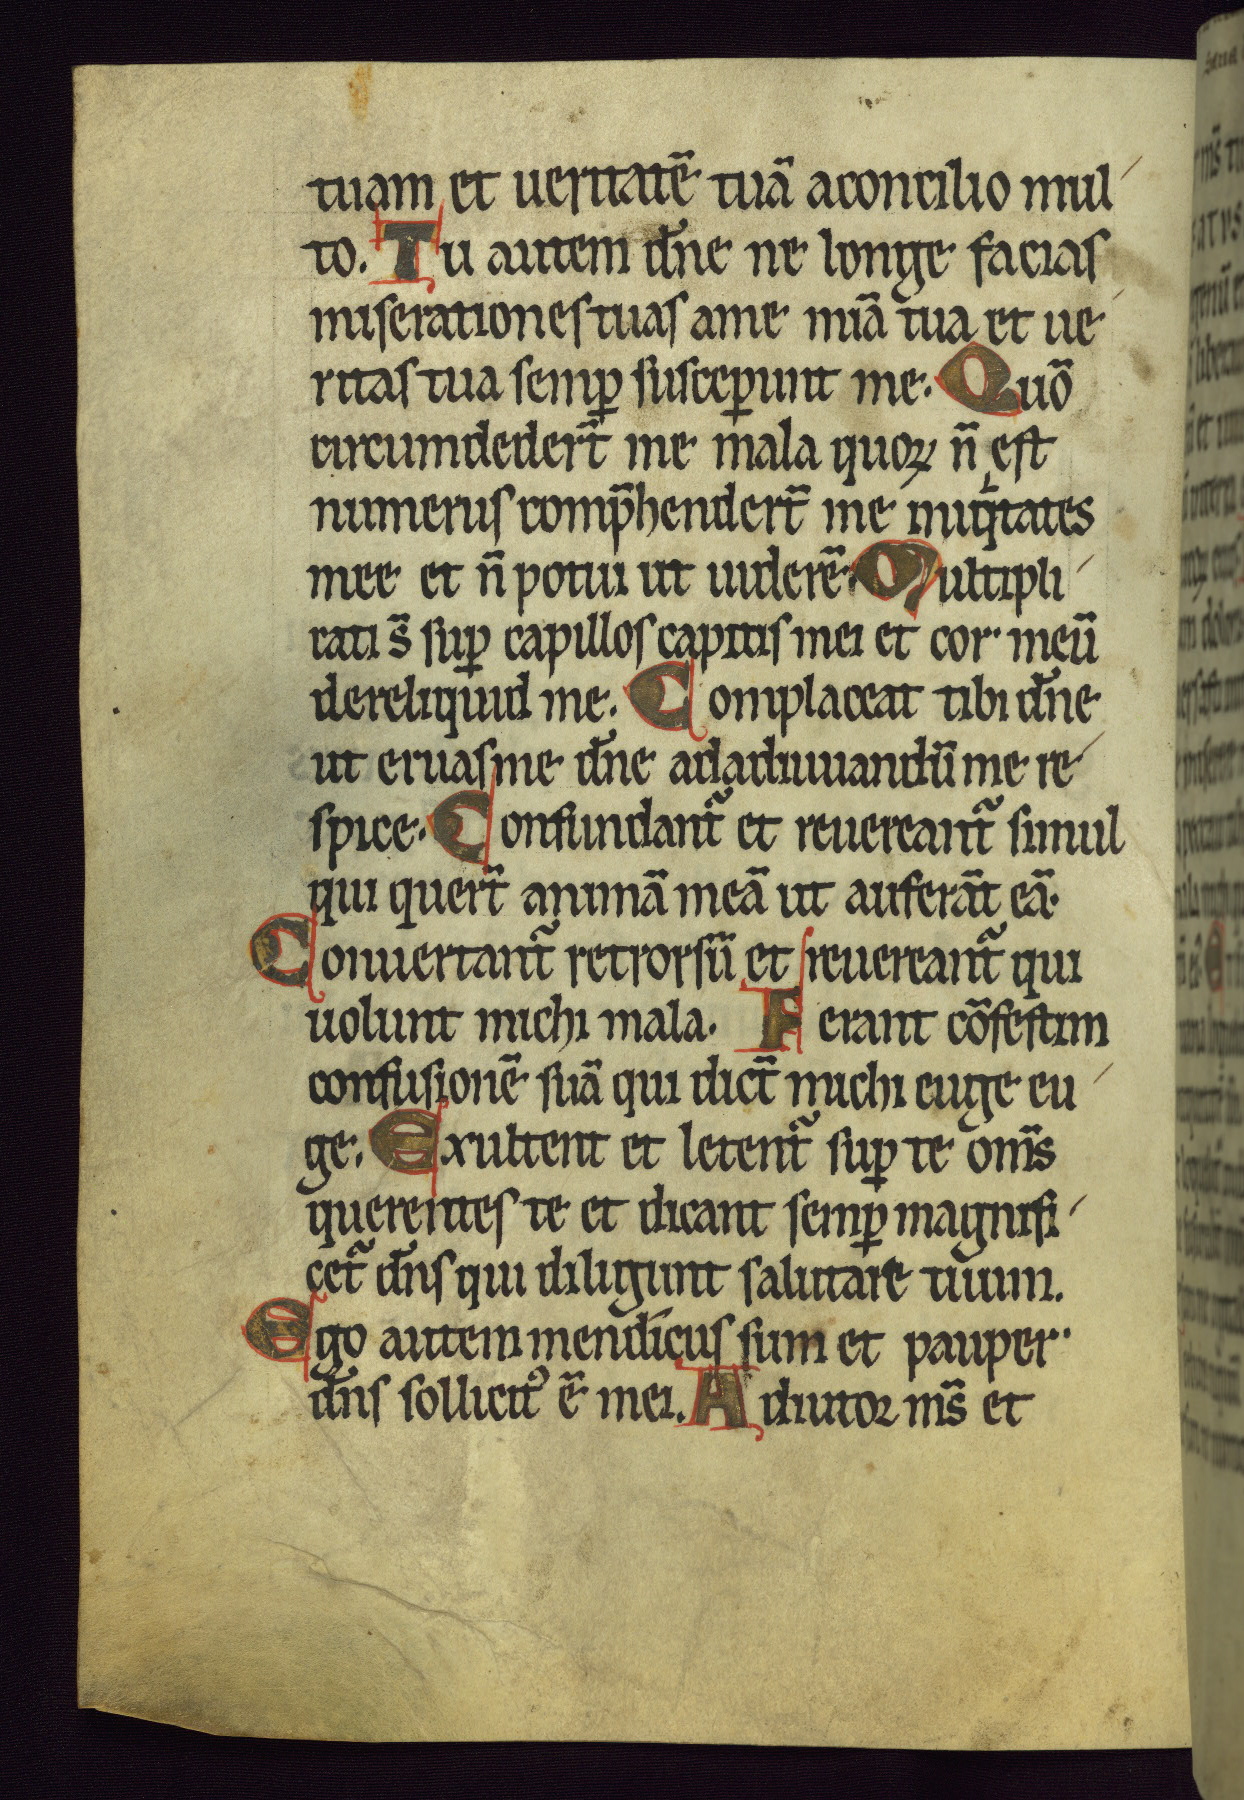 tuam et ueritatē tuā aconcilio mul
to. Tu autem dn̄e ne longe facias
miserationes tuas ame mīa tua et ue
ritas tua semꝑ susceꝑunt me. Quō
circumdeder̄t me mala quoꝝ n̄ est
numerus comp̄hender̄t me iniq̄tates
mee et n̄ potui ut uiderē. Multipli
cati s̄ suꝑ capillos capitis mei et cor meū
dereliquid me. Complaceat tibi dn̄e
ut eruas me dn̄e adadiuuandū me re
spice. Confundant᷑ et reuereant᷑ simul
qui quer̄t animā meā ut auferāt eā.
Conuertant᷑ retrorsū et reuereant᷑ qui
uolunt michi mala. Ferant cōfestim
confusionē suā qui dic̄t michi euge eu
ge. Exultent et letent᷑ suꝑ te om̄s
querentes te et dicant semꝑ magnifi
cet᷑ dn̄s qui diligunt salutare tuum.
Ego autem mendicus sum et pauper.
dn̄s sollicit᷒ ē mei. Adiutor m̄s et